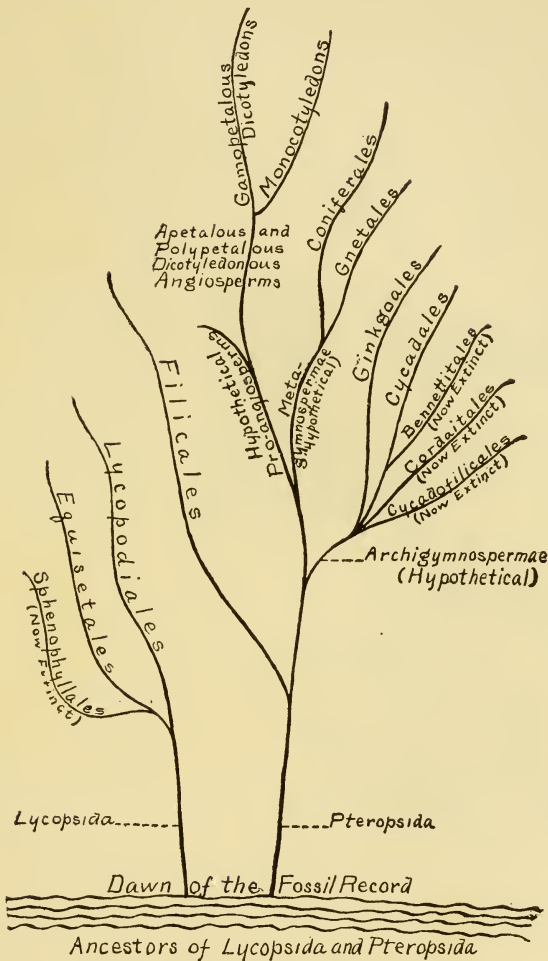 Gamopetalous
Dicotyledons
Monocotyledons
Apetalous and
Polypetalous
Dicotyledonous
Angiosperms
Coniferales
Gnetales
Ginkgoales
Cycadales
Bennettitales
(Now Extinct)
Cordaitales
(Now Extinct)
Cycadofilicales
(Now Extinct)
Hypothetical
Pro-angiosperms
Meta-
Gymnospermae
(Hypothetical)
Filicales
Lycopodiales
Equisetales
Sphenophyllales
(Now Extinct)
Archigymnospermae
(Hypothetical)
Lycopsida
Pteropsida
Dawn of the Fossil Record
Ancestors of Lycopsida and Pteropsida